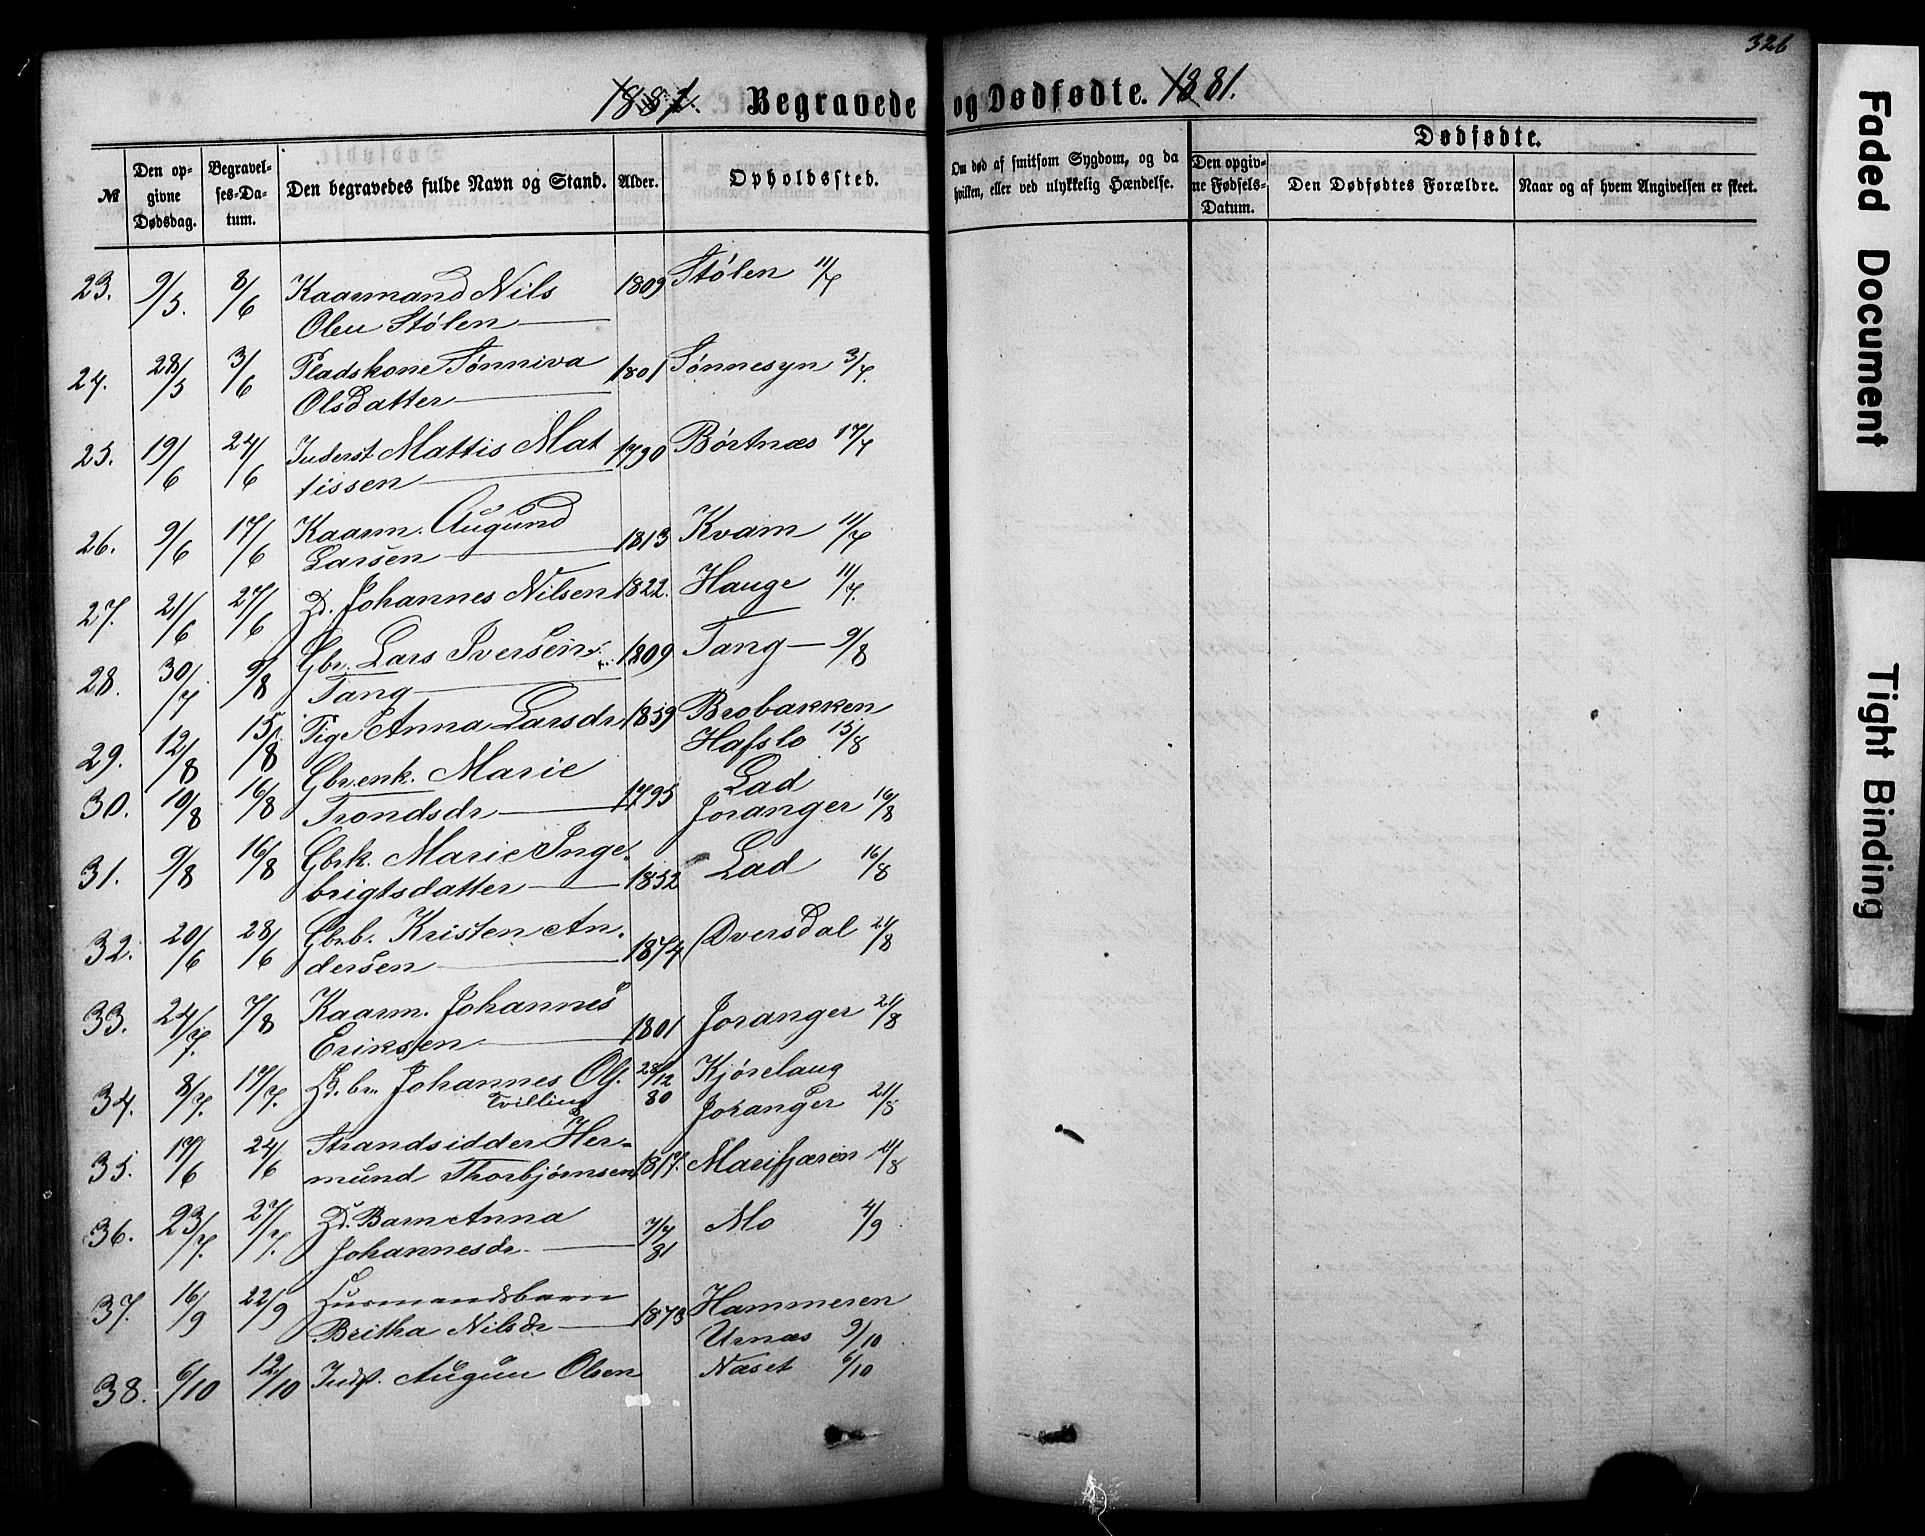 326
1881. Begravede og Dødfødte. 1881.
Dødfødte.
№ Den opgivne Dødsdag. Begravelses-Datum. Den begravedes fulde Navn og Stand. Alder. Opholdssted. Om død af smitsom Sygdom, og da hvilken, eller ved ulykkelig Hændelse. Den opgivne Fødsels-Datum. Den Dødfødtes Forældre. Naar og af hvem Angivelsen er skeet.
23. 9/5. 8/6 Kaarmand Nils 1809 Stølen 11/7
Olsu Stølen
24. 28/5 3/6 Pladskone Sønniva 1801 Sønnesyn 3/7.
Olsdatter
25. 19/6 24/6 Inderst Mattis Mat 1790 Børtnæs 17/7
tissen
26. 9/6 17/6 Kaarm. Augund 1813 Kvam 11/7
Larsen
27. 21/6 27/6 Hd. Johannes Nilsen 1822. Hauge 11/7.
28. 30/7 9/8 Gbr. Lars Iversen 1809 Tang 9/8
Tang
29. 12/8 15/8 Pige Anna Larsdr 1859 Brobakken
Hafslo 15/8
30. 10/8 16/8 Gbr.enk. Marie 1795 Lad
Trondsdr Joranger 16/8
31. 9/8 16/8 Gbrk. Marie Inge- 1852 Lad 16/8
brigtsdatter
32. 20/6 28/6 Gbrb. Kristen An- 1874 Dversdal 21/8
dersen
33. 24/7. 7/8 Kaarm. Johannes 1801 Joranger 21/8
Eriksen
34. 8/7. 17/7. Hd. br. Johannes Ols. 28/12 80 Kjørelaug
Tvilling Joranger 21/8
35. 17/6 24/6 Strandsidder Her- 1817. Marifjæren 21/8
mund Thorbjørnsen
36. 23/7. 27/7. Hd. Barn Anna 7/7 81 Mo 4/9
Johannesdr.
37. 16/9 22/9 Husmandsbarn 1873 Hammeren
Britha Nilsdr Urnæs 9/10
38. 6/10 12/10 Indst. Augun Olsen Næset 6/10
Faded Document
Tight Binding